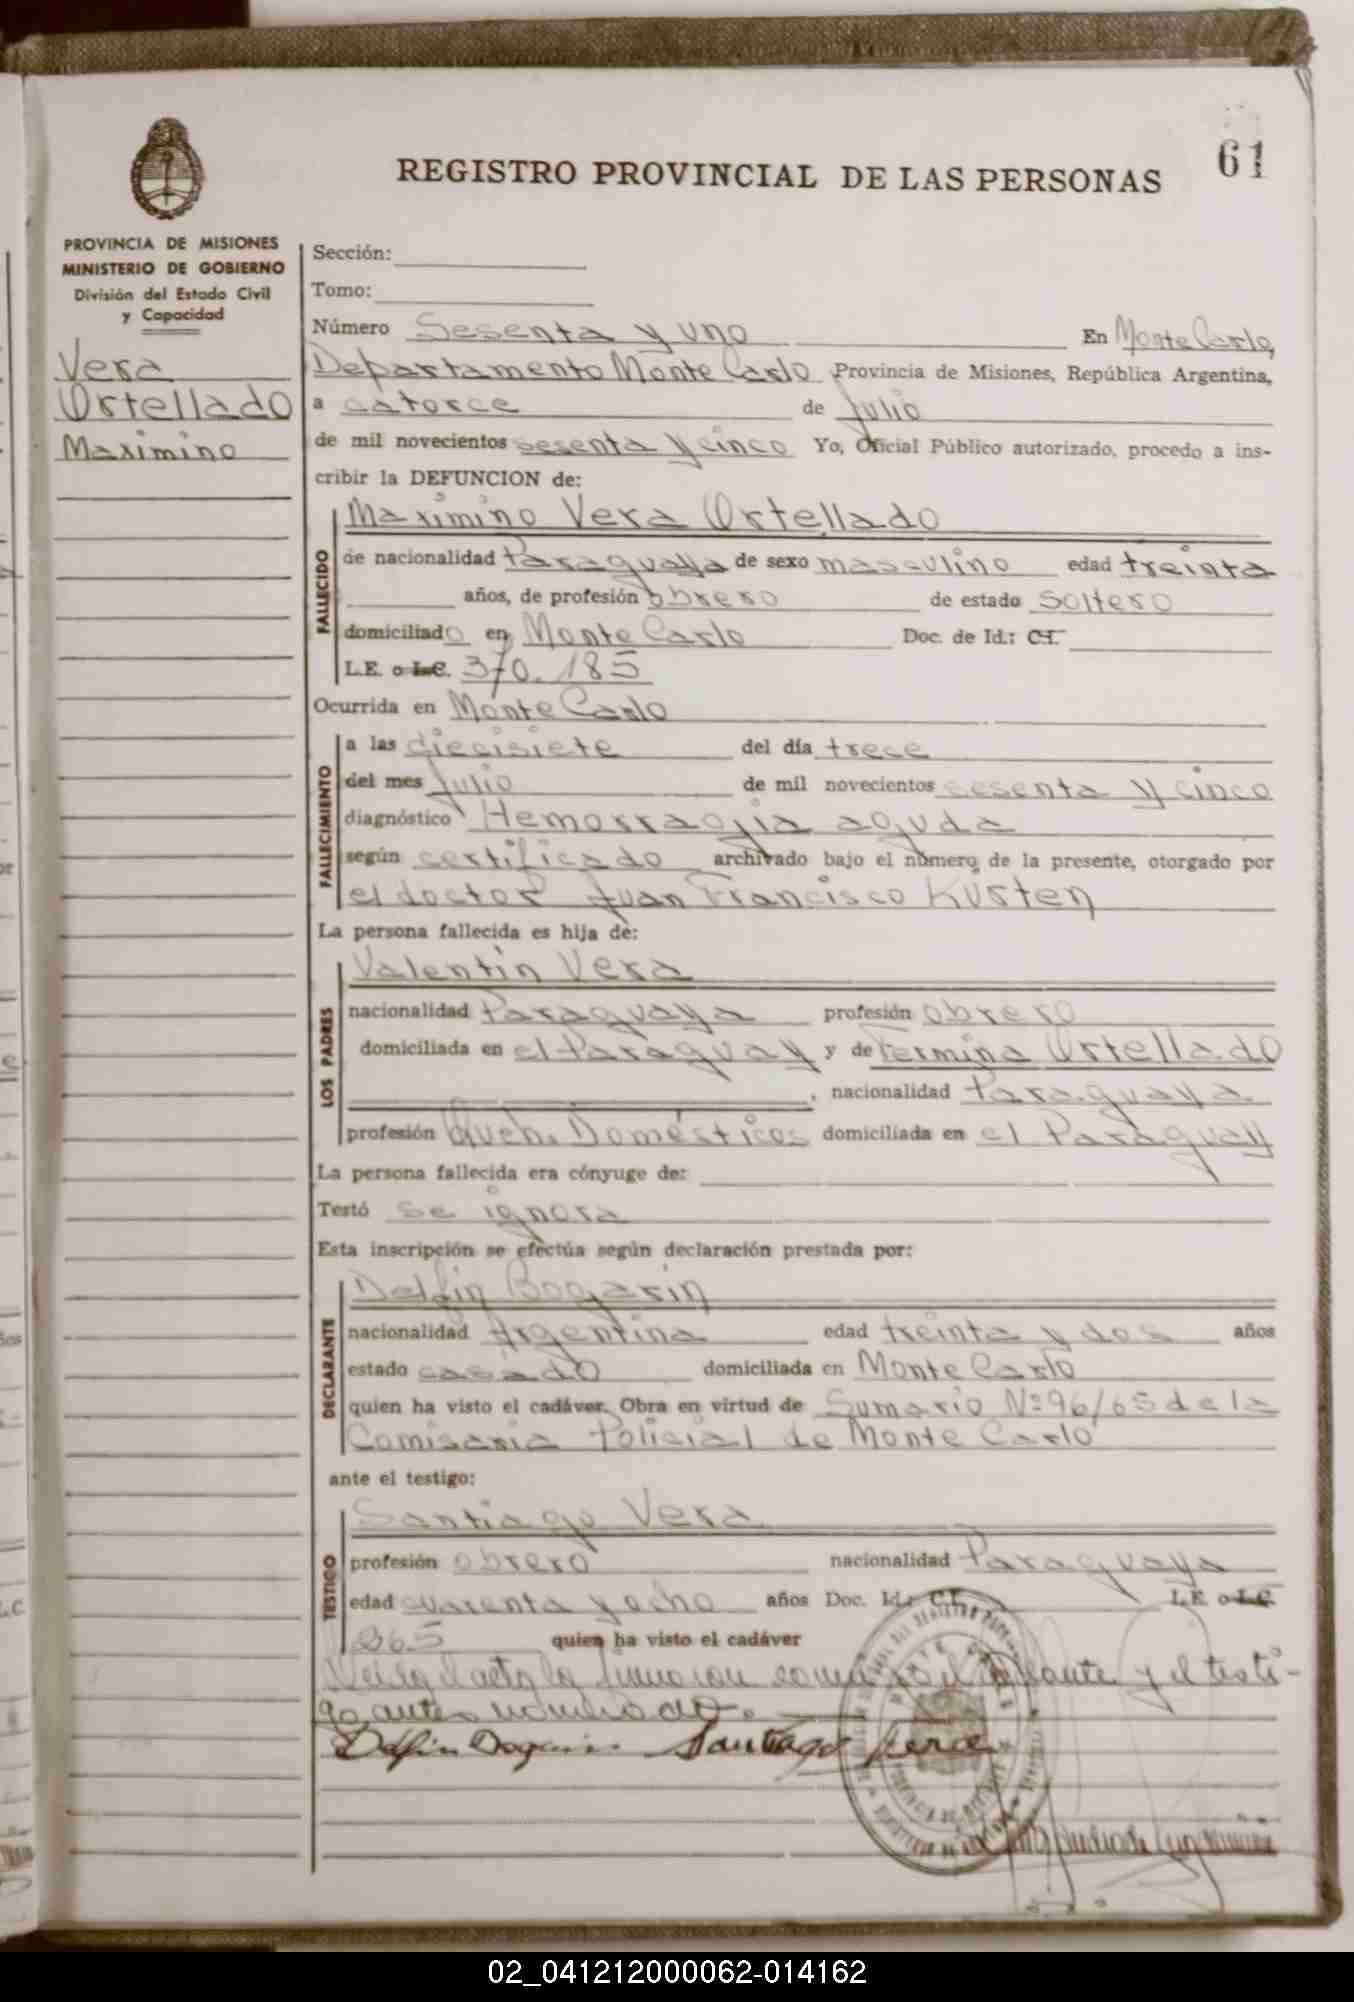 61
REGISTRO PROVINCIAL DE LAS PERSONAS
PROVINCIA DE MISIONES
MINISTERIO DE GOBIERNO
División del Estado Civil
y Capacidad
Vera
Ortellado
Maximino
Sección:
Tomo:
Número Sesenta y uno En Monte Carlo,
Departamento Monte Carlo Provincia de Misiones, República Argentina,
a catorce de Julio
de mil novecientos sesenta y cinco Yo, Oficial Público autorizado, procedo a ins-
cribir la DEFUNCION de:
FALLECIDO
Maximino Vera Ortellado
de nacionalidad Paraguaya de sexo masculino edad treinta
años, de profesión obrero de estado soltero
domiciliado en Monte Carlo Doc. de Id.: C.I.
L.E. o L.C. 370.185
Ocurrida en Monte Carlo
FALLECIMIENTO
a las diecisiete del día trece
del mes Julio de mil novecientos sesenta y cinco
diagnóstico Hemorragia aguda
según certificado archivado bajo el número de la presente, otorgado por
el doctor Juan Francisco Kürten
La persona fallecida es hija de:
LOS PADRES
Valentin Vera
nacionalidad Paraguaya profesión obrero
domiciliada en el Paraguay y de Fermina Ortellado
, nacionalidad Paraguaya
profesión Queh. Domésticos domiciliada en el Paraguay
La persona fallecida era cónyuge de:
Testó se ignora
Esta inscripción se efectúa según declaración prestada por:
DECLARANTE
Delfin Bogarin
nacionalidad Argentina edad treinta y dos años
estado casado domiciliada en Monte Carlo
quien ha visto el cadáver. Obra en virtud de Sumario Nº 96/65 de la
Comisaria Policial de Monte Carlo
ante el testigo:
TESTIGO
Santiago Vera
profesión obrero nacionalidad Paraguaya
edad cuarenta y ocho años Doc. Id.: C.I. L.E. o L.C.
365 quien ha visto el cadáver
el acta la y el testi-
go antes nombrado.
Delfin Bogarin Santiago Vera
02_041212000062-014162